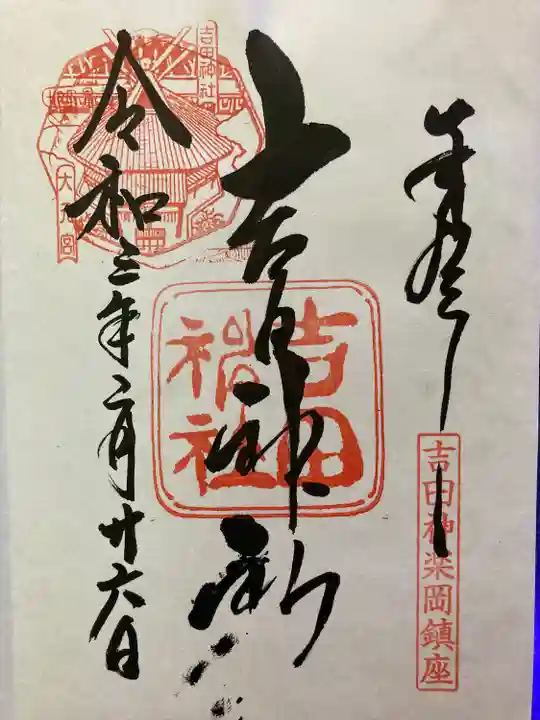 奉拝
吉田神楽岡鎮座
吉田神社
吉田神社
令和三年二月廿六日
吉田神社
大元宮